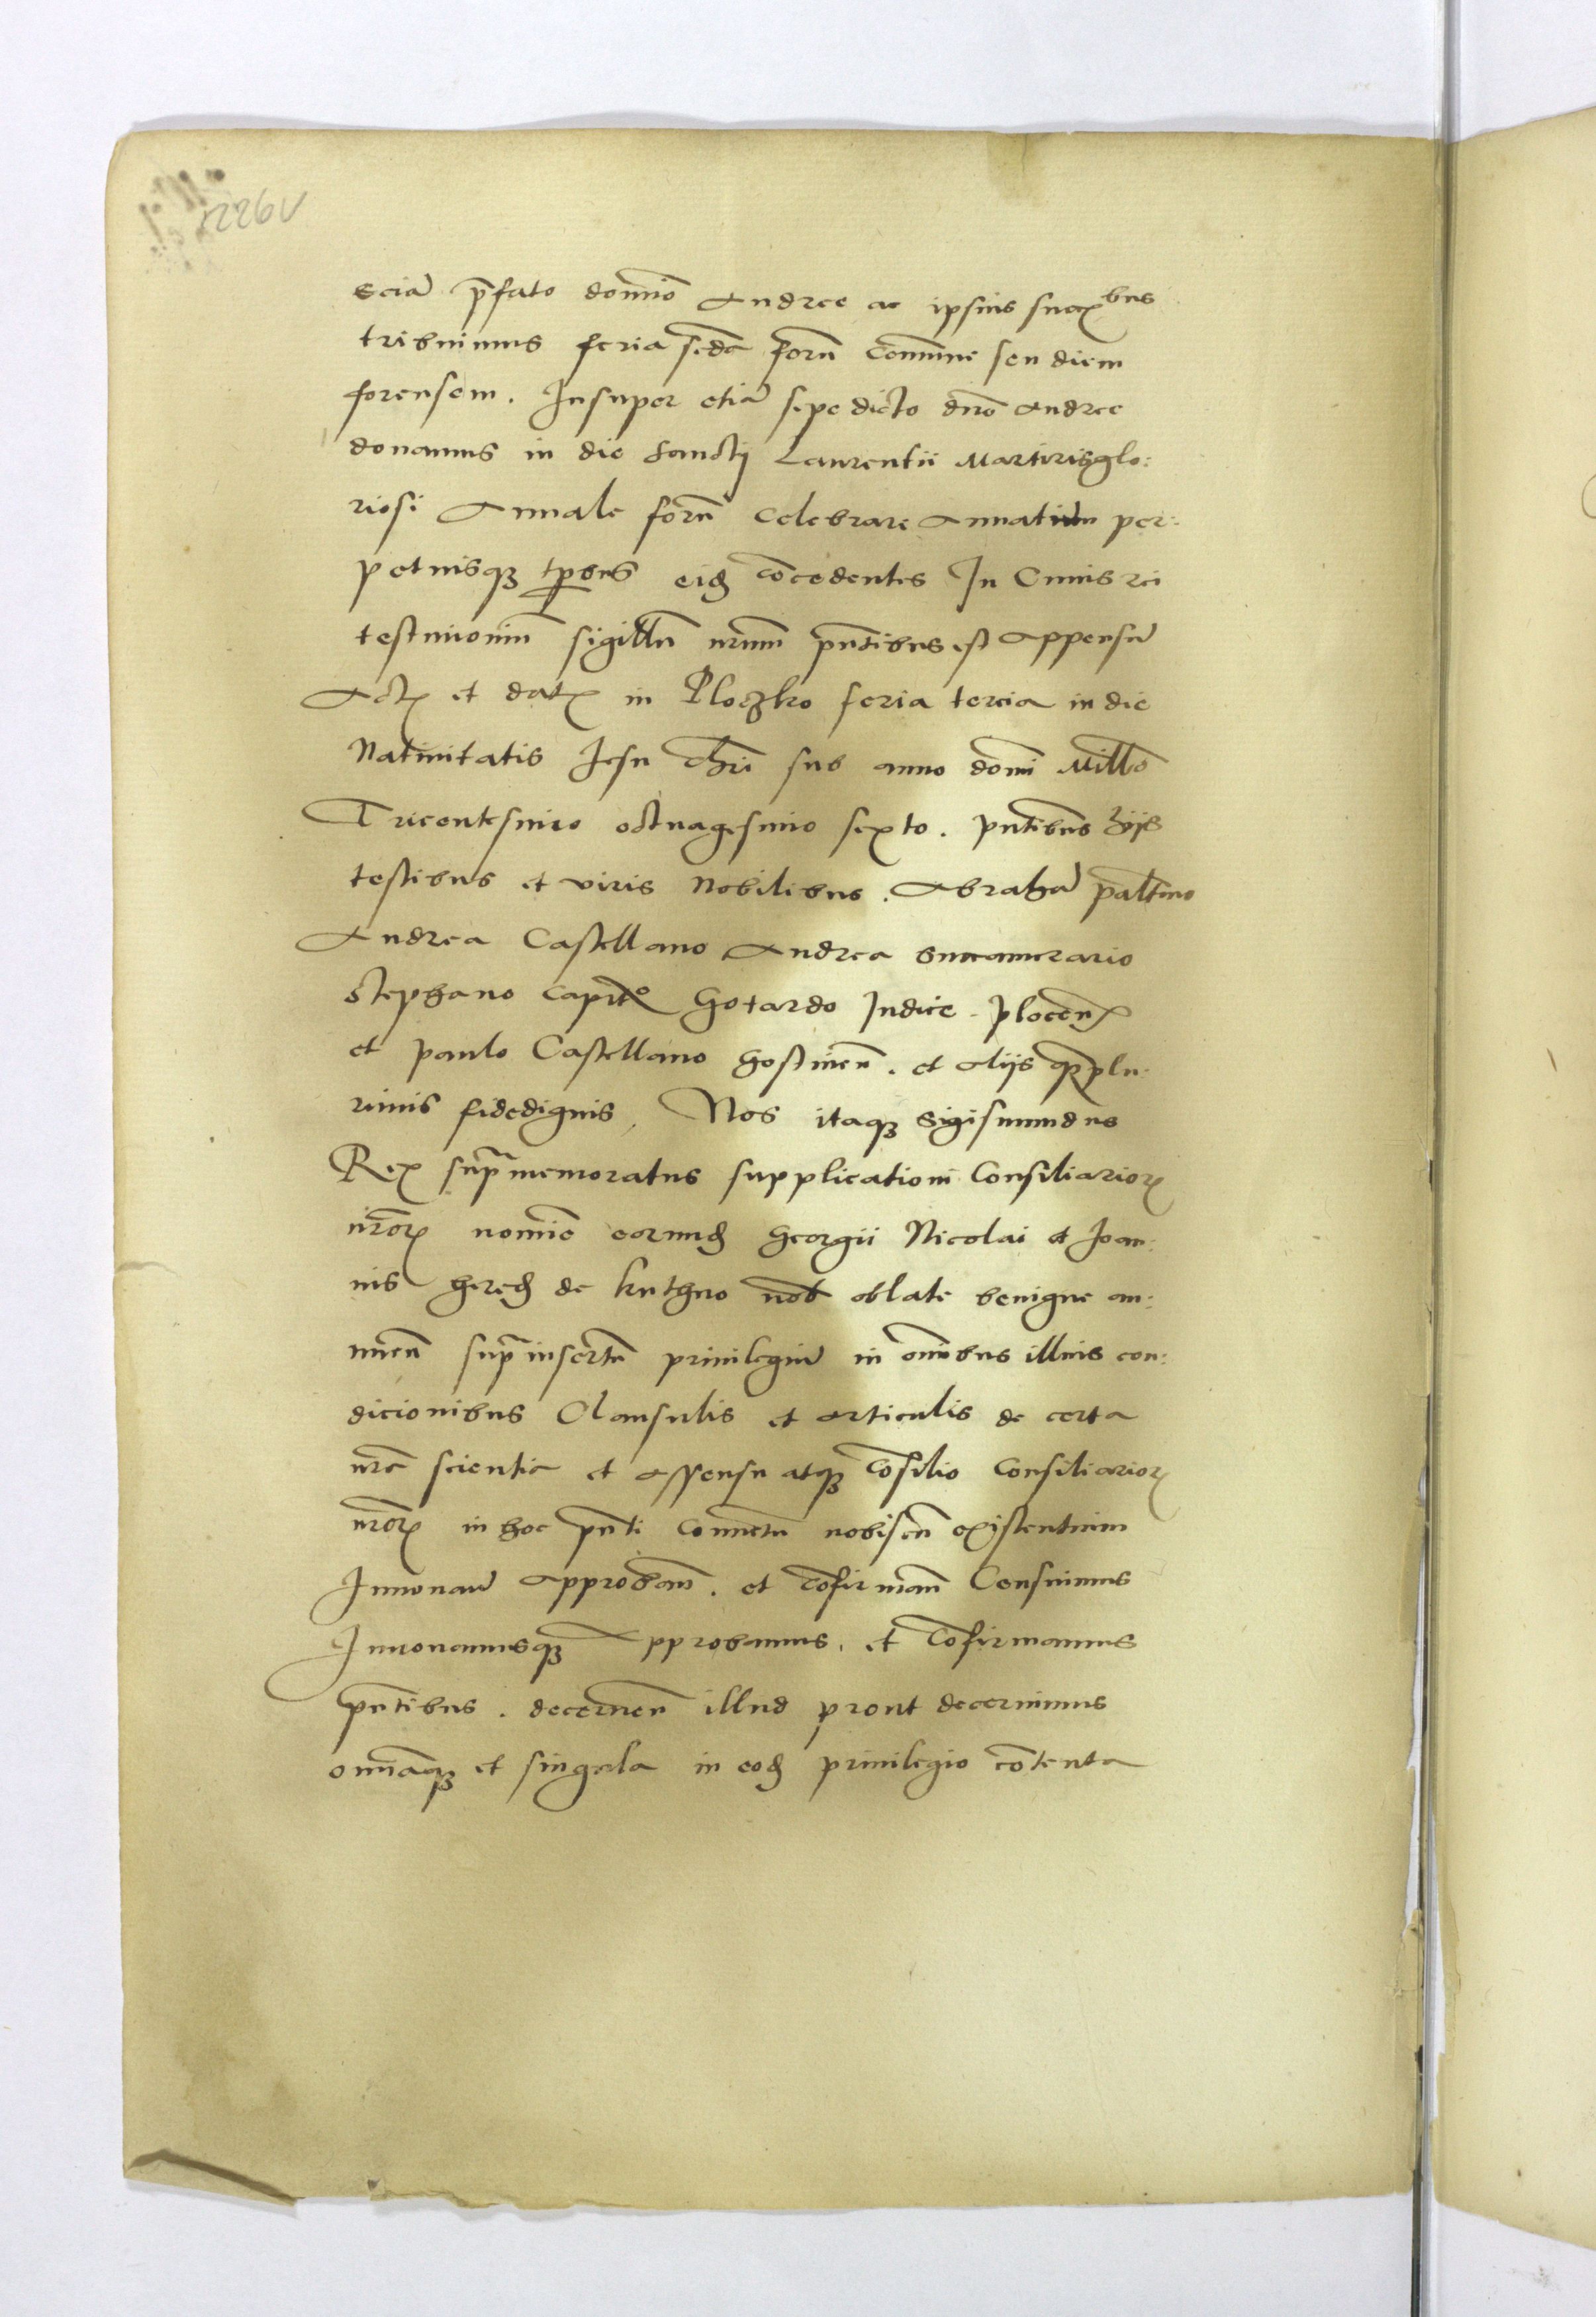 226v
eciā p̄fato domīo Andree ac ipsius sucꝝbus
tribuimus feria secūda forū comune seu diem
forensem. Insuper etiā sepe dicto dn̄o Andree
donamus in die Sancti Laurentii Martiris glo:
riosi Annale forū celebrare Annatim per:
petuisqꝫ tp̄bus eidē cōcedentes In Cuius rei
testimoniū sigillū nr̄um pn̄tibus est Appensū
Actꝝ et datꝝ in Ploczko feria tercia in die
Natiuitatis Jesu Chr̄i sub anno domī Mill̄o
Tricentesimo octuagesimo sexto. pn̄tibus hijs
testibus et viris Nobilibus. Abrahā palatino
Andrea Castellano Andrea succamerario
Stephano Capitō Gotardo Judice Plocen̄
et paulo Castellano Gostinen̄. et Alijs qp̄plu:
rimis fidedignis, Nos itaqꝫ Sigismundus
Rex supramemoratus supplicationi Consiliarioꝝ
nr̄orꝝ nomīe eorundē Georgii Nicolai et Joan:
nis heredē de Kuthno nob̄ oblate benigne an:
nuen̄ supra insertū priuilegiū in om̄ibus illius con:
dicionibus Clausulis et articulis de certa
nr̄a scientia et assensu atqꝫ cōsilio Consiliarioꝝ
nr̄orꝝ in hoc pn̄ti Conuētu nobiscū existentium
Innouan̄ Approban̄. et cōfirman̄ Censuimus
Innouamusqꝫ Approbamus. et cōfirmamus
pn̄tibus. decernen̄ illud prout decernimus
om̄iaqꝫ et singula in eodē priuilegio cōtenta